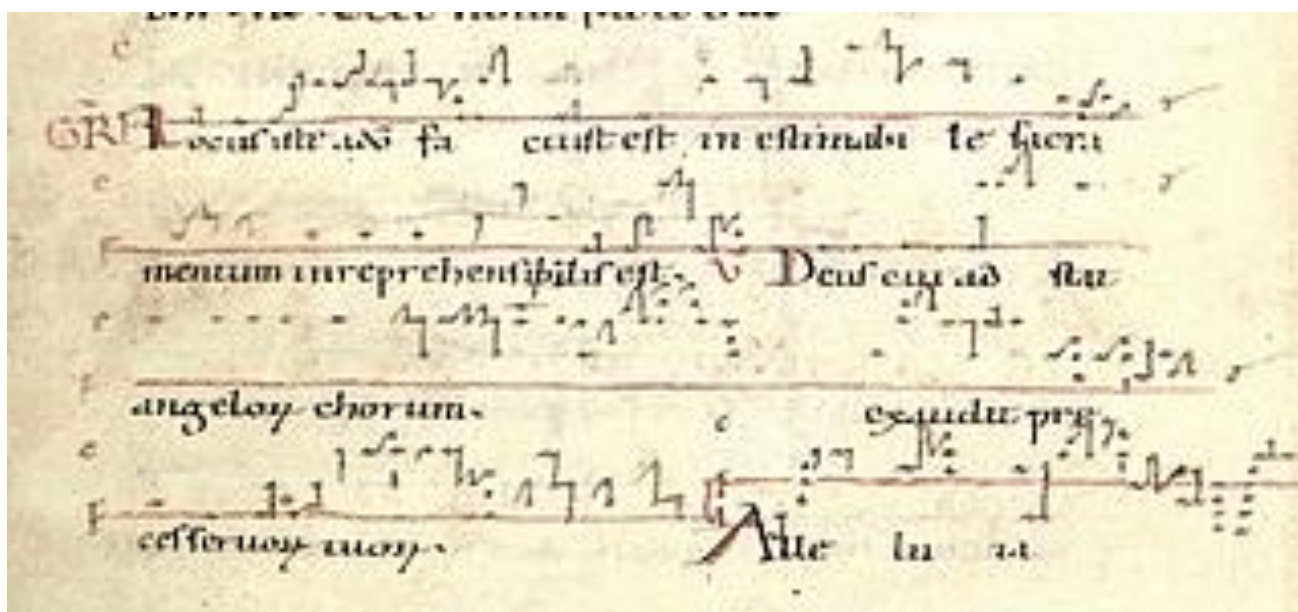 GR Locus iste a dō fa ctus est in estimabi le sacra
mentum inreprehensibilis est. V Deus cui ad stat
angeloꝝ chorum. exaudi pre
ces servoꝝ tuoꝝ. Alle lu ia